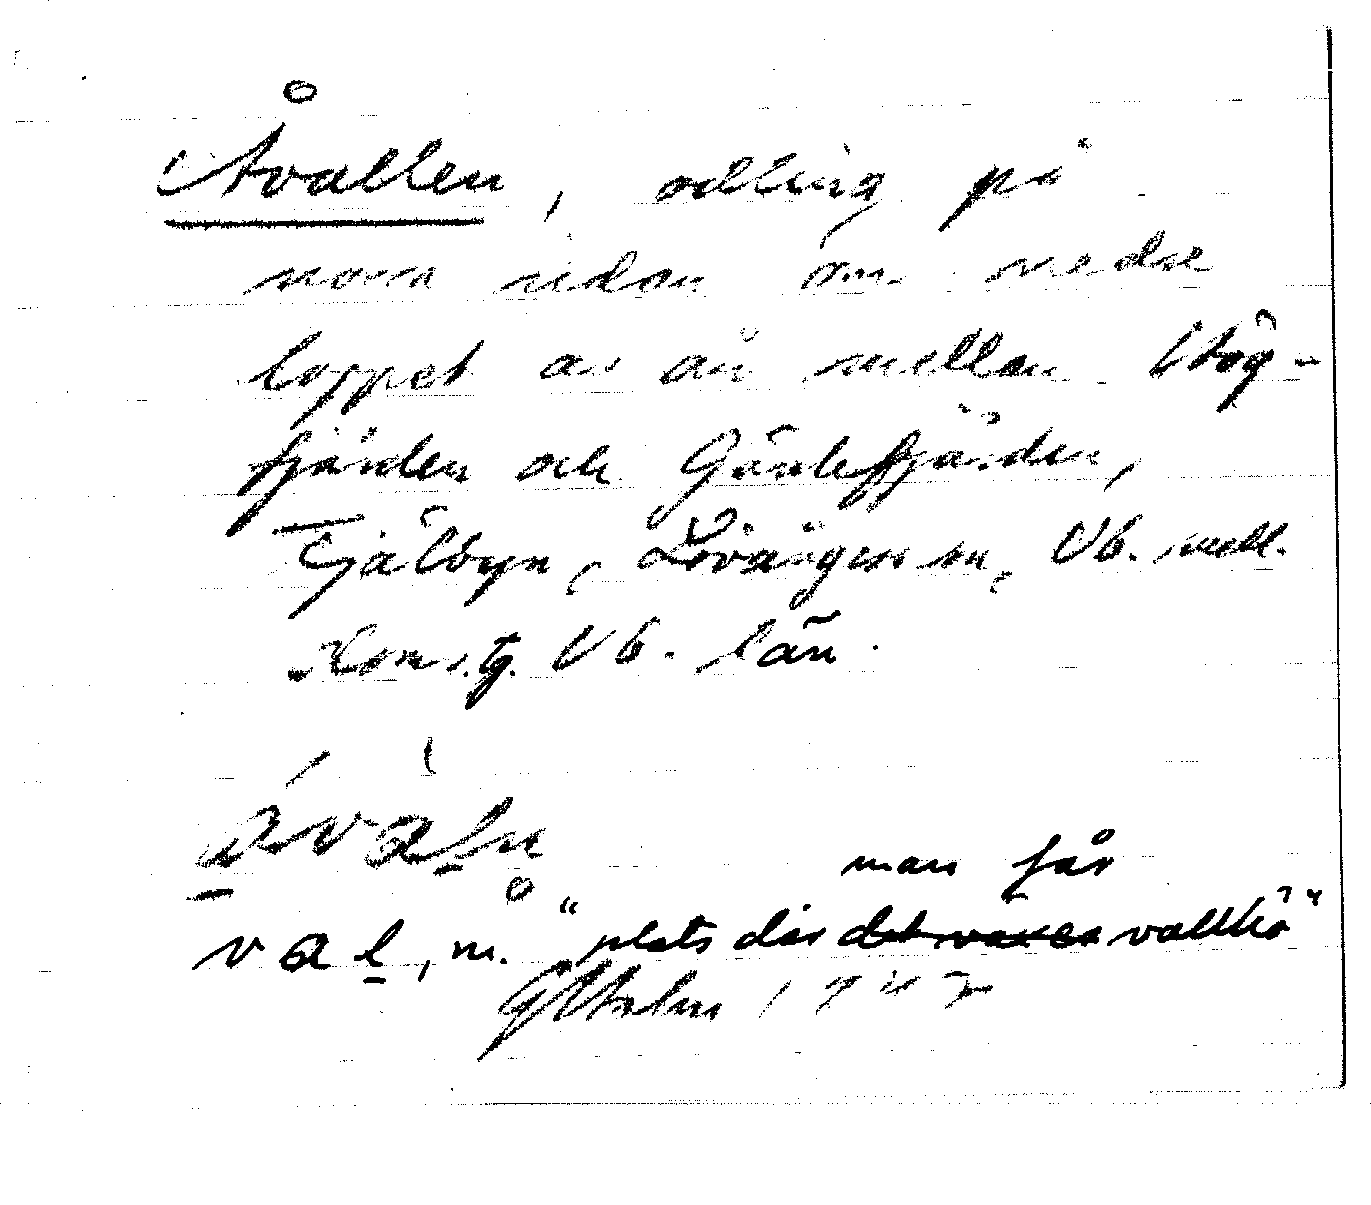 Åvallen, odling på
norra sidan om nedre
loppet av ån mellan Hög-
fjärden och Gärdefjärden,
Fjälbyn, Lövångers sn, Vb. mell.
Kons.tg. Vb. län.
åvaln
man får
val, m. "plats där det växer vallhö"
GHholm 1947